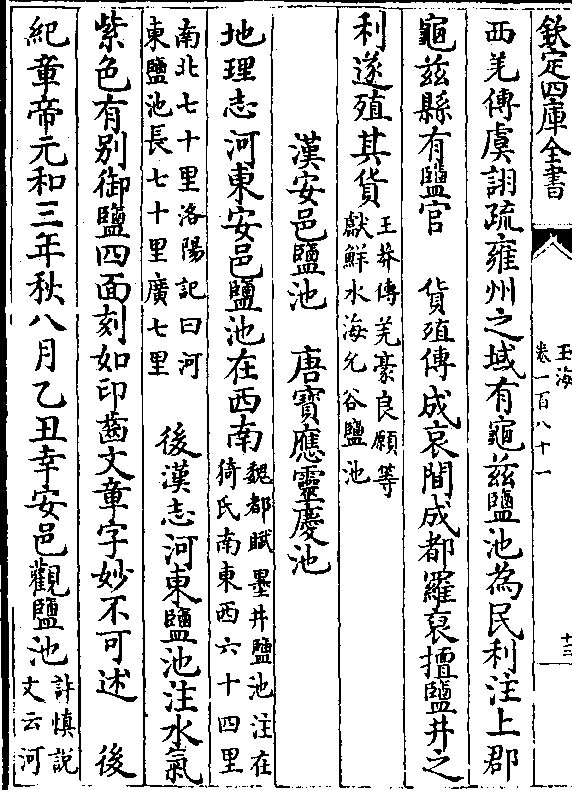 欽定四庫全書
玉海
卷一百八十一
十三
西羌傳虞詡疏雍州之域有龜茲鹽池為民利注上郡
龜茲縣有鹽官　貨殖傳成哀間成都羅裒擅鹽井之
利遂殖其貨
王莽傳羌豪良願等
獻鮮水海允谷鹽池
漢安邑鹽池　唐寶應靈慶池
地理志河東安邑鹽池在西南
魏都賦墨井鹽池注在
猗氏南東西六十四里
南北七十里洛陽記曰河
東鹽池長七十里廣七里
後漢志河東鹽池注水氣
紫色有别御鹽四面刻如印齒文章字妙不可述　後
紀章帝元和三年秋八月乙丑幸安邑觀鹽池
許慎說
文云河